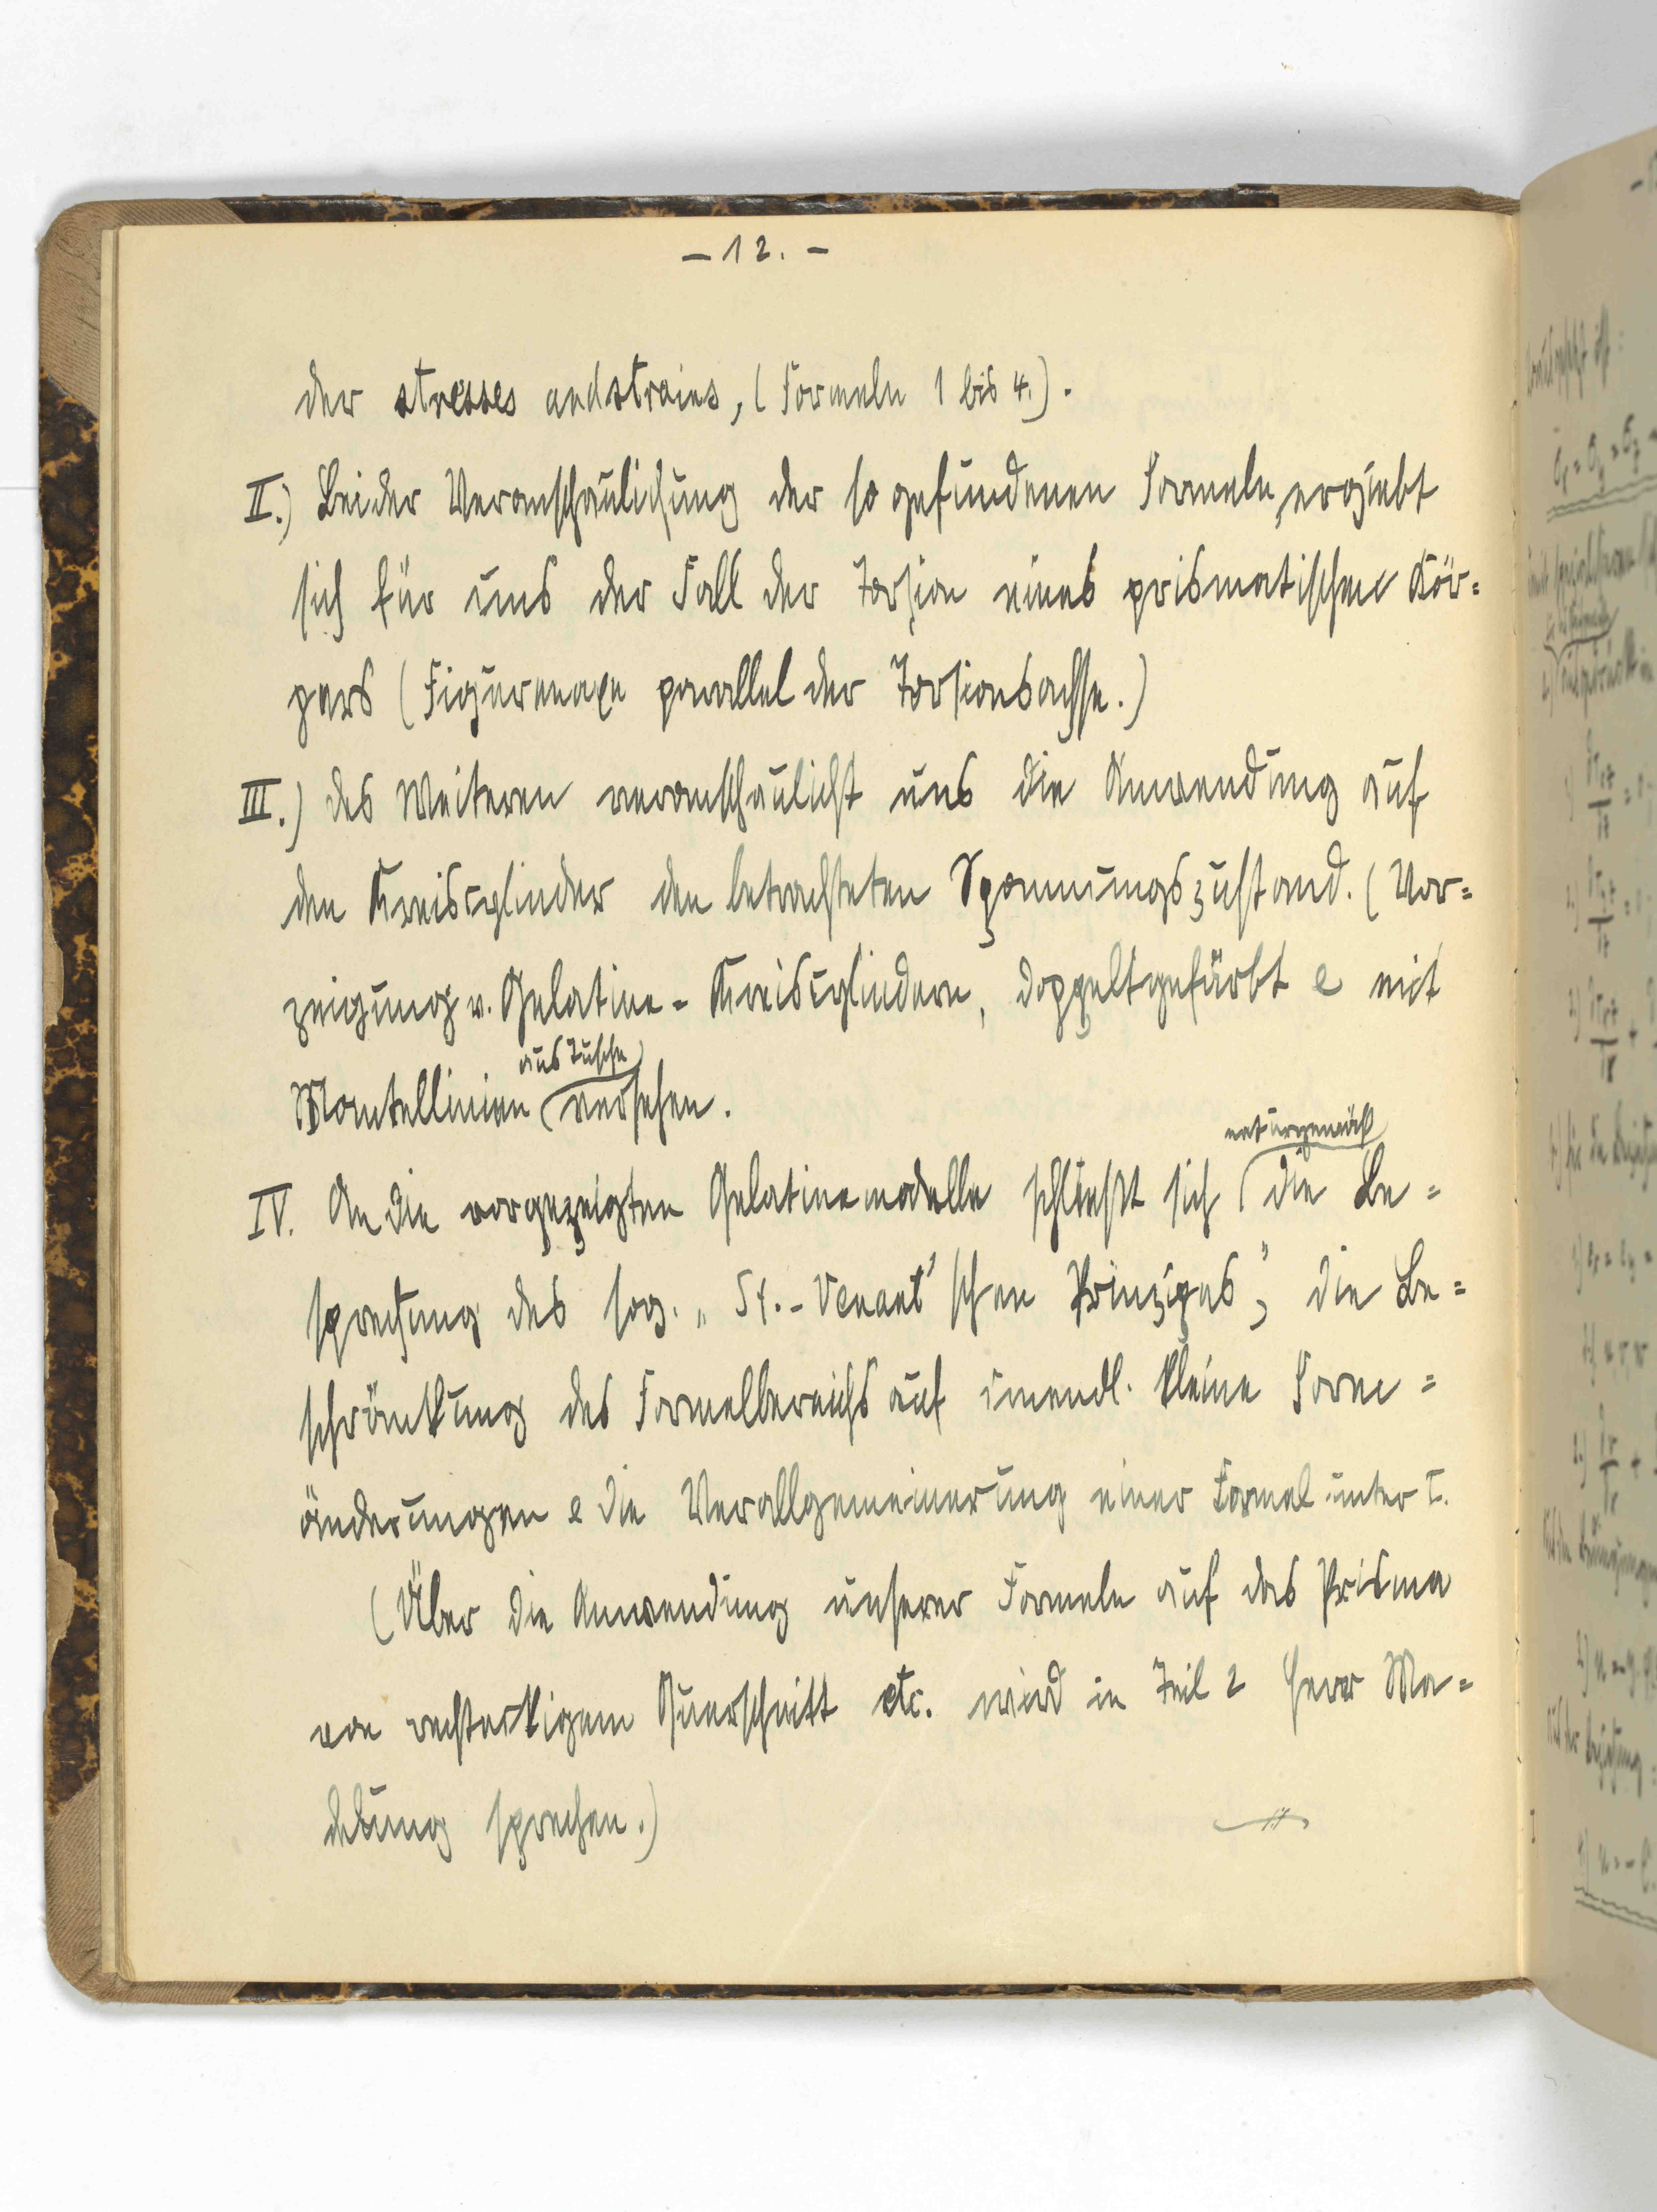 - 12. -
der stresses and strains, (Formeln 1 bis 4.).
II.) Bei der Veranschaulichung der so gefundenen Formeln, ergiebt
sich für uns der Fall der Torsion eines prismatischen Kör=
pers (Figurenaxe parallel der Torsionsachse.)
III.) des Weiteren veranschaulicht uns die Anwendung auf
den Kreiscylinder den betrachteten Spannungszustand. (Vor=
zeigung v. Gelatine-Kreiscylindern, doppelt gefärbt & mit
aus Tusche
Mantellinien versehen.
naturgemäß
IV. An die vorgezeigten Gelatinemodelle schließt sich die Be=
sprechung des sog. „St.-Venant'schen Prinzipes", die Be=
schränkung des Formelbereichs auf unendl. kleine Form=
änderungen & die Verallgemeinerung einer Formel unter I.
(Über die Anwendung unserer Formeln auf das Prisma
von rechteckigem Querschnitt etc. wird in Teil 2 Herr Ma=
delung sprechen.)